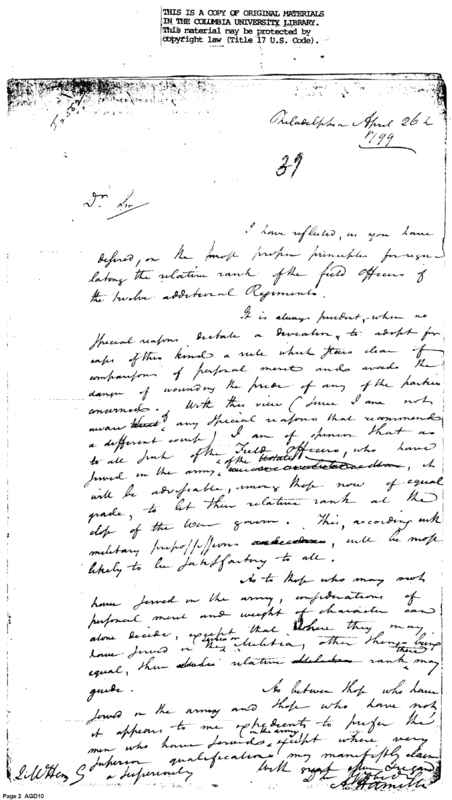 THIS IS A COPY OF ORIGINAL MATERIALS
IN THE COLUMBIA UNIVERSITY LIBRARY.
This material may be protected by
copyright law (Title 17 U.S. Code).
Philadelphia April 26th
1799
39
Dr. Sir
I have reflected, as you have
desired, on the most proper principles for regu
lating the relative rank of the field officers of
the twelve additional Regiments.
It is always prudent, when no
special reasons dictate a deviation, to adopt for
cases of this kind a rule which steers clear of
comparisons of personal merit and avoids the
danger of wounding the pride of any of the parties
concerned. With this view (since I am not
aware of any special reasons that recommend
a different course) I am of opinion that as
to all such of the Field Officers, who have
served in the army of the United States, it
will be adviseable, among those now of equal
grade, to let their relative rank at the
close of the War govern. This, according with
military prepossessions, will be most
likely to be satisfactory to all.
As to those who may not
have served in the army, considerations of
personal merit and weight of character can
alone decide, except that where they may
have served in the Militia, other things being
equal, their relative rank there may
guide.
As between those who have
served in the army and those who have not
it appears to me expedient to prefer the
men who have served in the army except where very
superior qualifications may manifestly claim
a superiority
With great esteem I regard
Dr Sir
A Hamilton
J. McHenry
Page 2 AGD10